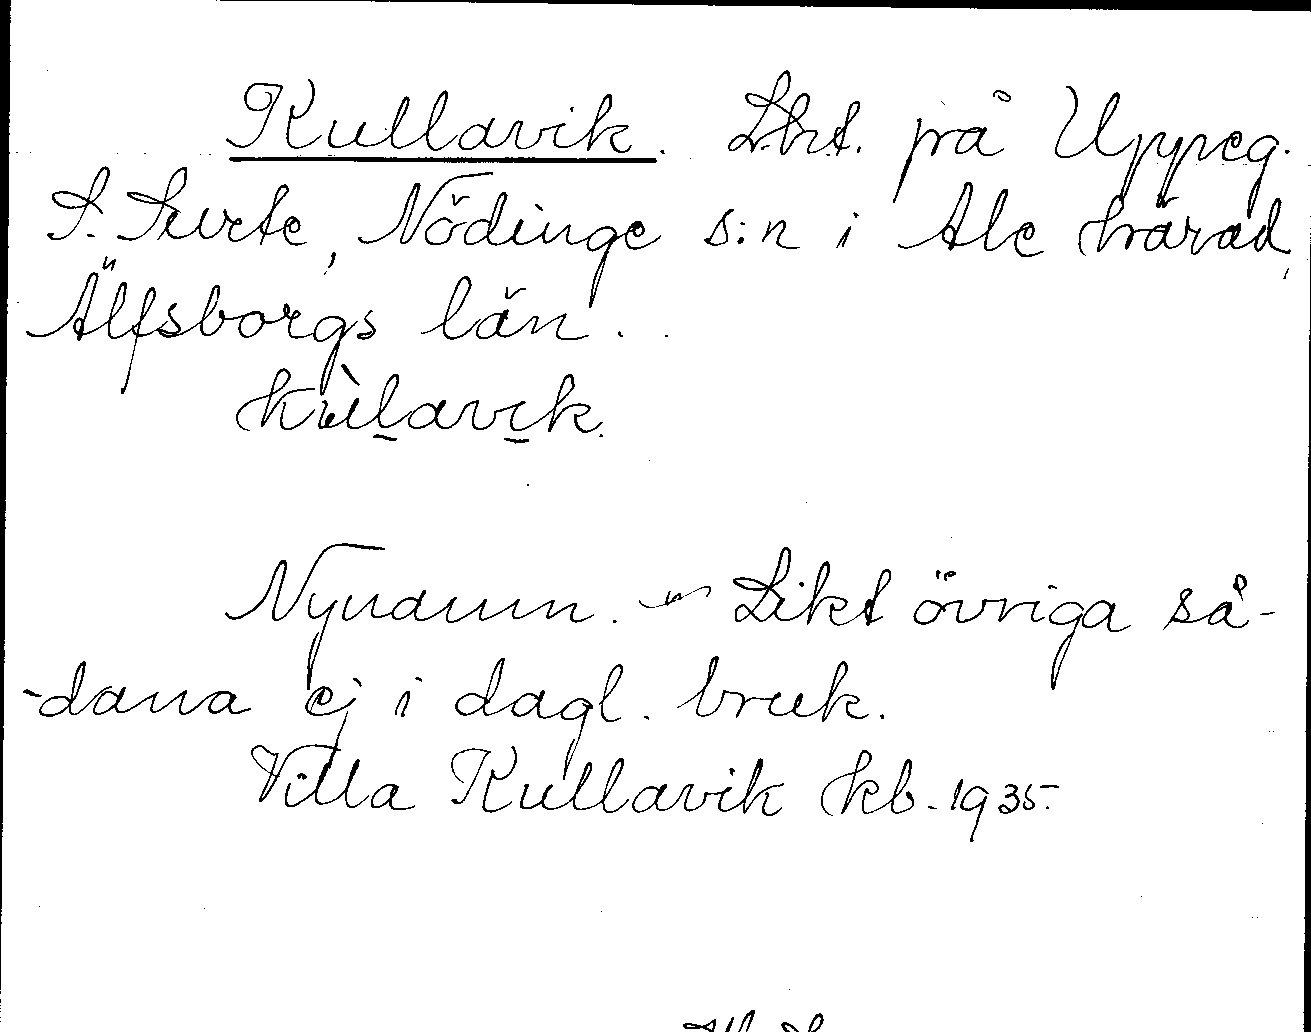 Kullavik. Lht. på Uppeg.
S. Surte, Nödinge s:n i Ale härad,
Älfsborgs län.
kùlavik.
Nynamn. – Likt övriga så-
-dana ej i dagl. bruk.
Villa Kullavik kb. 1935.